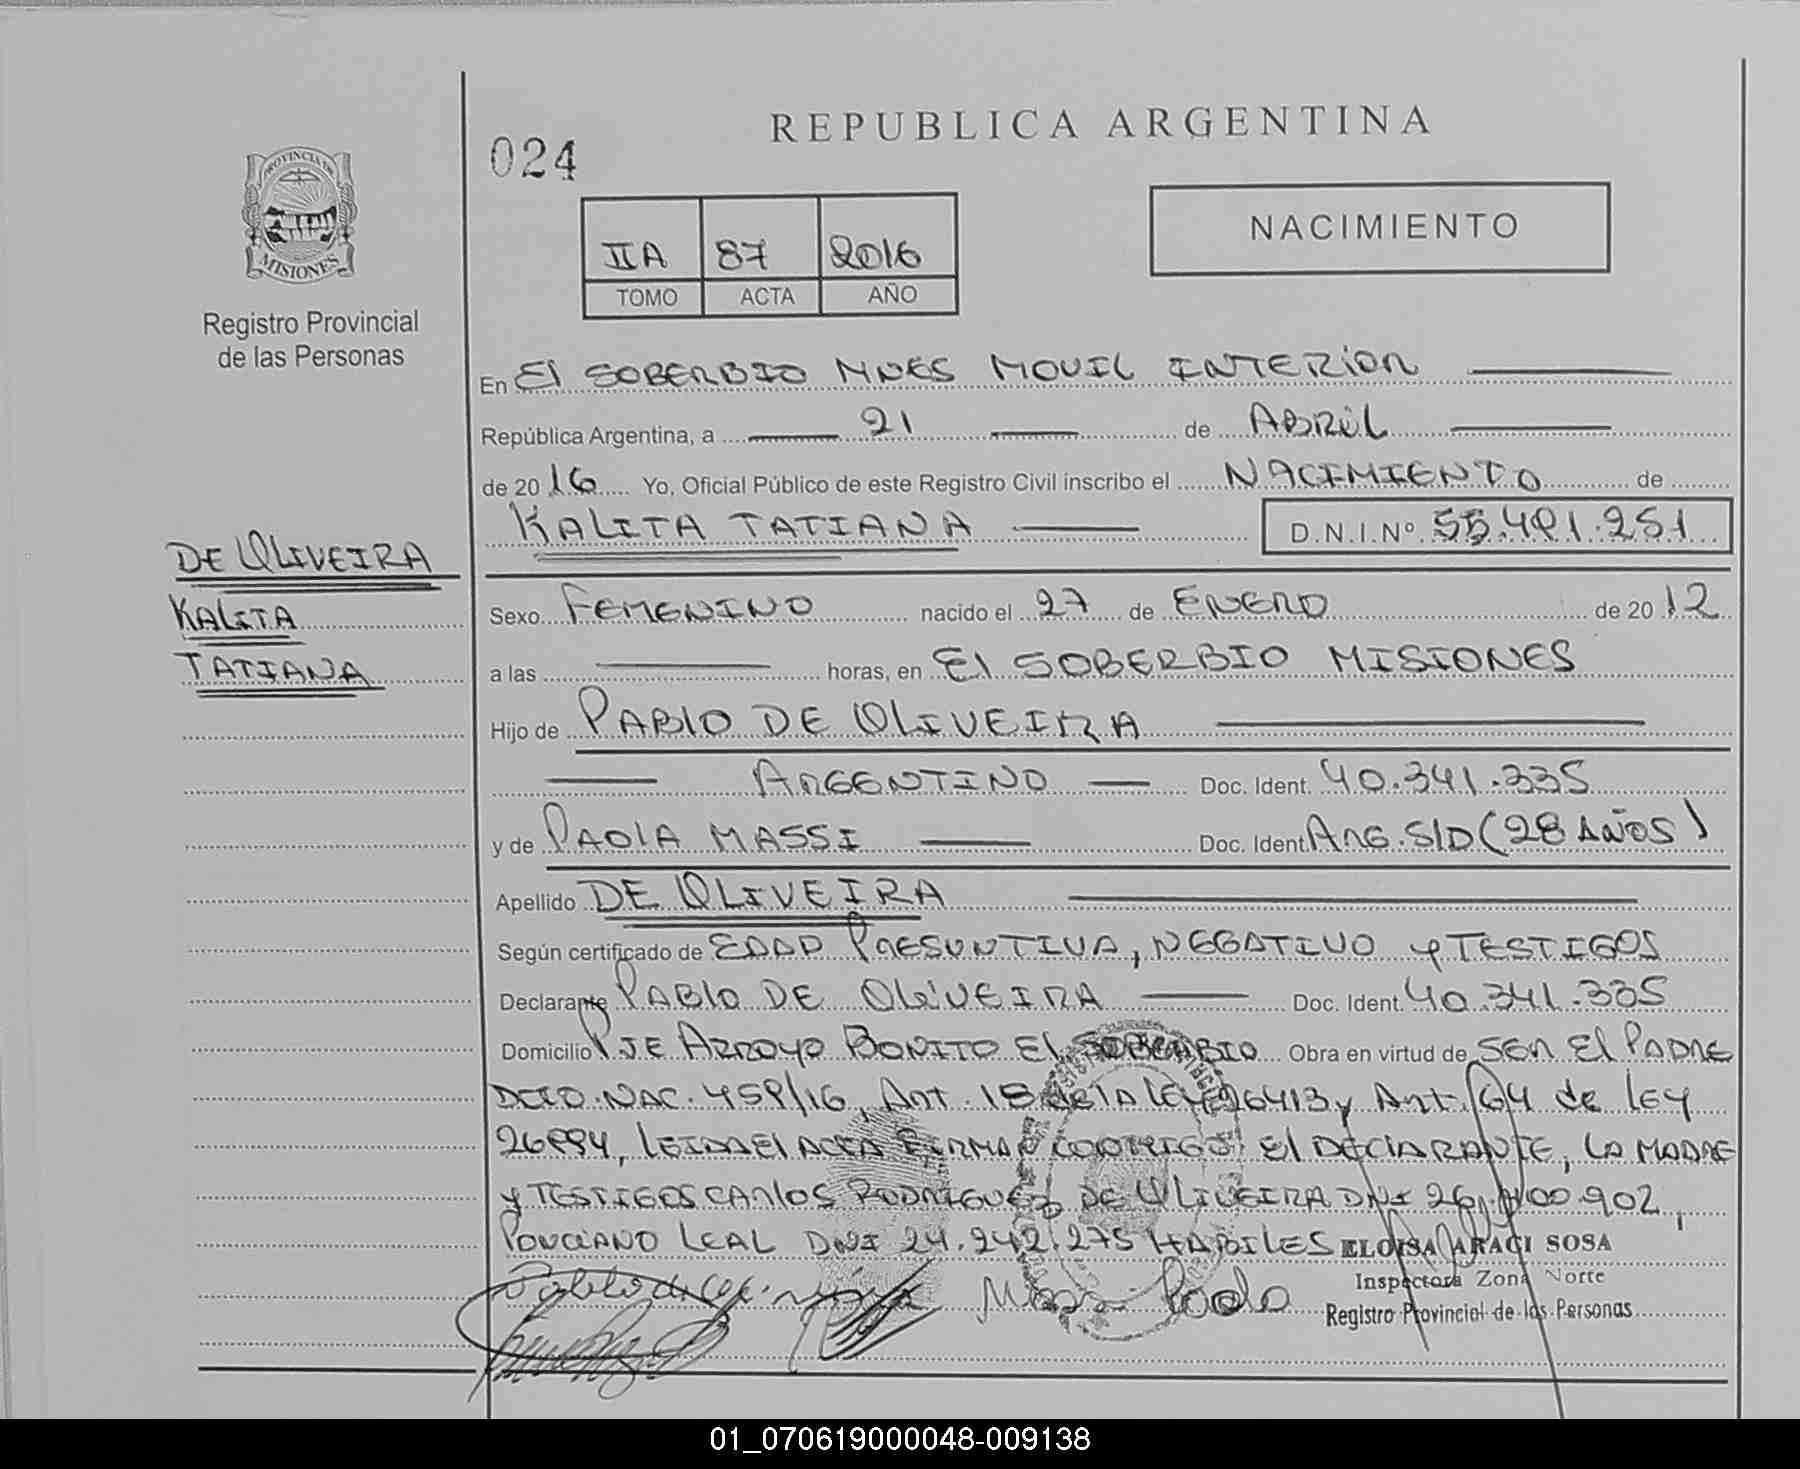 REPUBLICA ARGENTINA
024
PROVINCIA DE
MISIONES
Registro Provincial
de las Personas
IIA 87 2016
TOMO ACTA AÑO
NACIMIENTO
En El SOBERBIO MNES MOVIL INTERIOR
República Argentina, a 21 de ABRIL
de 2016 Yo, Oficial Público de este Registro Civil inscribo el NACIMIENTO de
KALITA TATIANA D.N.I.Nº 55.491.251
DE OLIVEIRA
KALITA
TATIANA
Sexo FEMENINO nacido el 27 de ENERO de 2012
a las horas, en El SOBERBIO MISIONES
Hijo de PABLO DE OLIVEIRA
ARGENTINO Doc. Ident. 40.341.335
y de PAOLA MASSI Doc. Ident. ARG. S/D (28 AÑOS)
Apellido DE OLIVEIRA
Según certificado de EDAD PRESUNTIVA, NEGATIVO y TESTIGOS
Declarante PABLO DE OLIVEIRA Doc. Ident. 40.341.335
Domicilio PJE ARROYO BONITO El SOBERBIO Obra en virtud de SER El PADRE
DCTO. NAC. 459/16, Art. 18 de la LEY 26413 y Art. 64 de LEY
26994, LEIDA El ACTA FIRMAN CONMIGO El DECLARANTE, LA MADRE
y TESTIGOS CARLOS RODRIGUEZ DE OLIVEIRA DNI 26. 902,
PONCIANO LEAL DNI 24.242.275 HABILES ELOISA ARACI SOSA
Inspectora Zona Norte
Massi Paola
Registro Provincial de las Personas
01_070619000048-009138